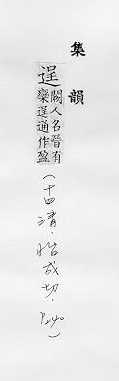 集韻
逞
闕人名晉有
欒逞通作盈
(十四清·怡成切·P240)